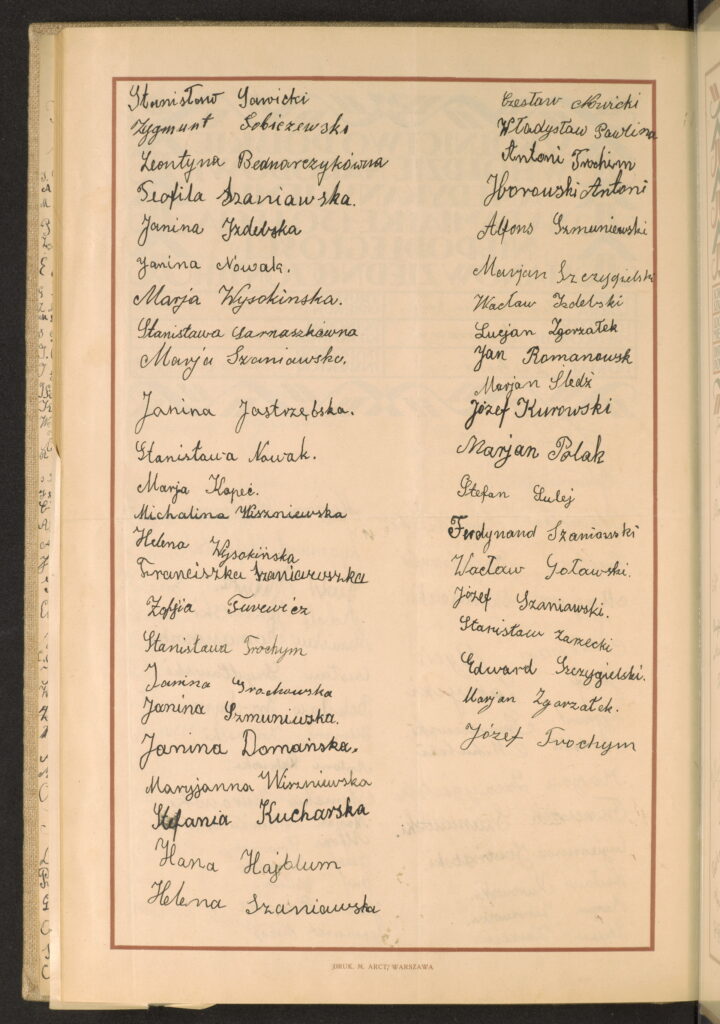 Stanisław Sawicki
Zygmunt Sobiczewski
Leontyna Bednarczykówna
Teofila Szaniawska.
Janina Izdebska
Janina Nowak.
Marja Wysokińska.
Stanisława Garnaszkówna
Marja Szaniawska.
Janina Jastrzębska.
Stanisława Nowak.
Marja Kopeć.
Michalina Wiszniewska
Helena Wysokińska
Franciszka
Zofja
Stanisława Trochym
Janina Grochowska
Janina Szmuniewska.
Janina Domańska.
Maryjanna Wiszniewska
Stefania Kucharska
Hana Hajblum
Helena Szaniawska
Czesław Nowicki
Władysław Pawlina
Antoni Trochim
Antoni
Alfons Szmuniewski
Marjan Szczygielski
Wacław Izdebski
Lucjan Zgorzałek
Jan Romanowsk
Marjan Śledź
Józef Kurowski
Marjan Polak
Stefan Sulej
Ferdynand Szaniawski
Wacław Goławski.
Józef Szaniawski.
Stanisław Zarzecki
Edward Szczygielski.
Marjan Zgorzałek.
Józef Trochym
DRUK. M. ARCT/ WARSZAWA